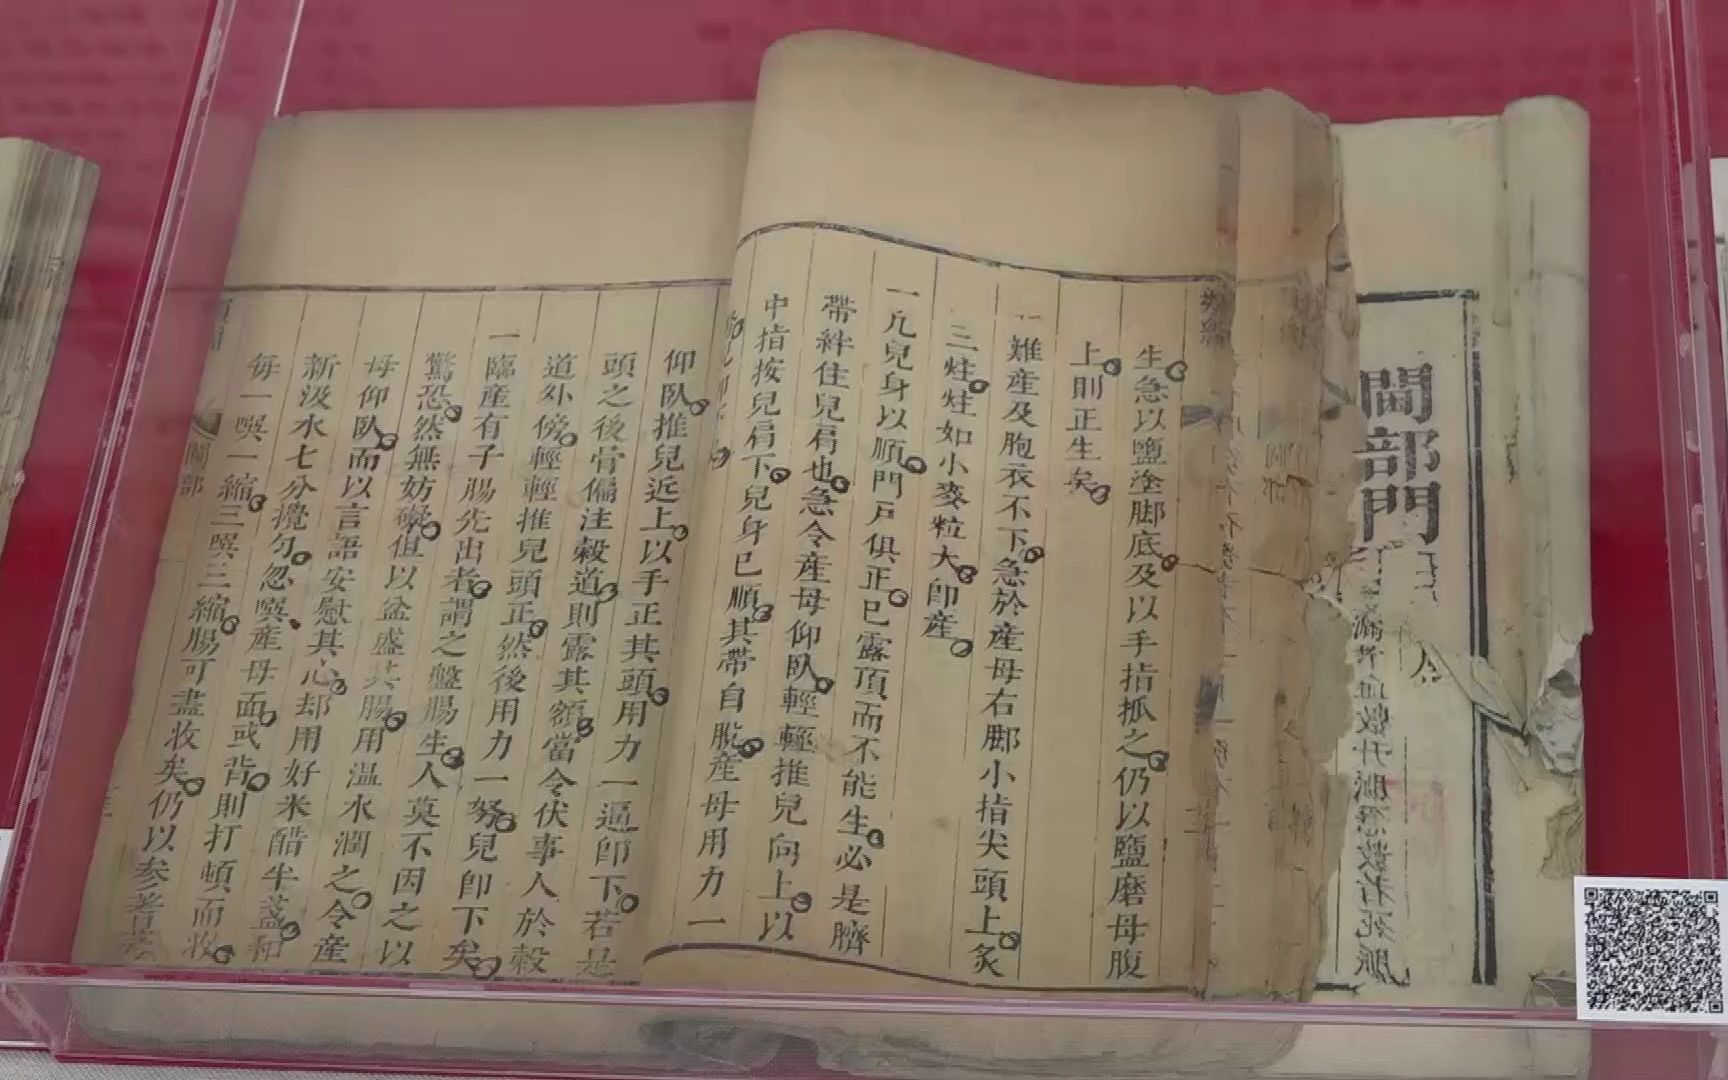 閫部門
生急以鹽塗脚底及以手指抓之仍以鹽磨母腹
上則正生矣
一難產及胞衣不下急於產母右脚小指尖頭上炙
三炷炷如小麥粒大即產
一凢兒身以順門戸俱正已露頂而不能生必是臍
帶絆住兒肩也急令產母仰臥輕輕推兒向上以
中指按兒肩下兒身已順其帶自脫產母用力一
仰臥推兒近上以手正其頭用力一逼即下若是
頭之後骨偏注穀道則露其額當令伏事人於穀
道外傍輕輕推兒頭正然後用力一努兒即下矣
一臨產有子腸先出者謂之盤腸生人莫不因之以
驚恐然無妨礙但以盆盛其腸用溫水潤之令產
母仰臥而以言語安慰其心却用好米醋半盞和
新汲水七分攪勻忽噀產母面或背則打頓而收
每一噀一縮三噀三縮腸可盡收矣仍以参蓍